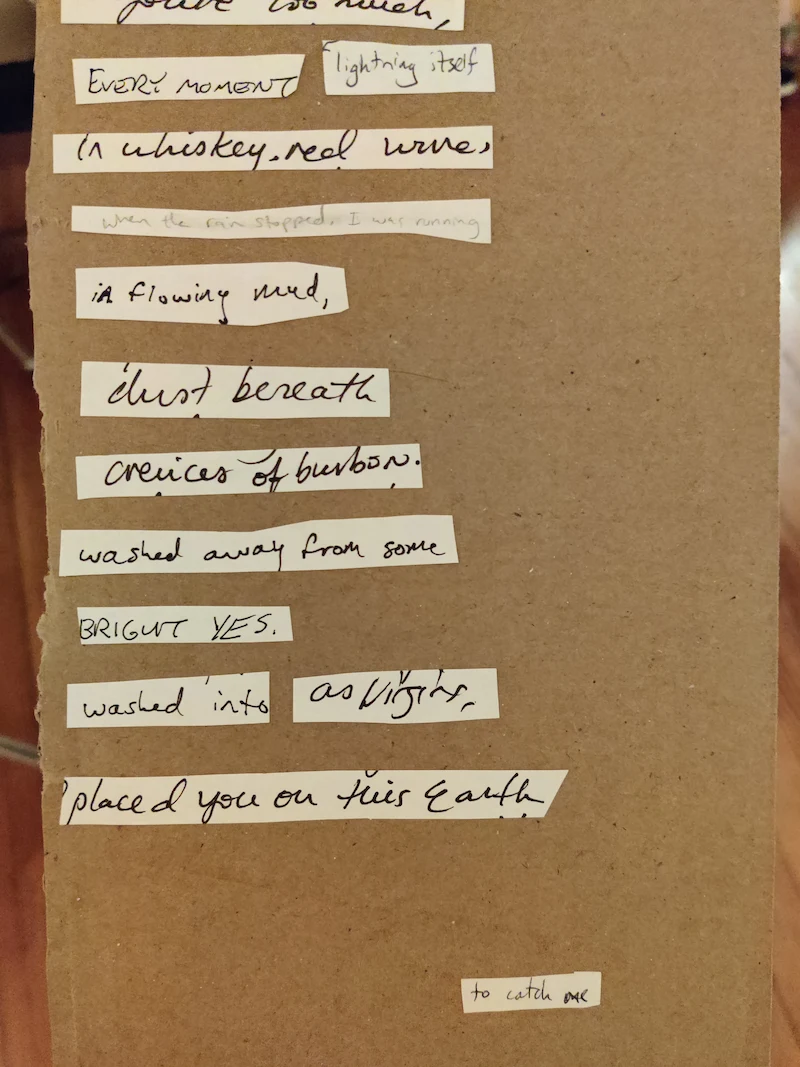 you've too much,
EVERY MOMENT lightning itself
in whiskey, red wine,
when the rain stopped, I was running
in flowing mud,
dust beneath
crevices of burbon.
washed away from some
BRIGHT YES.
washed into as virgins,
placed you on this Earth
to catch me